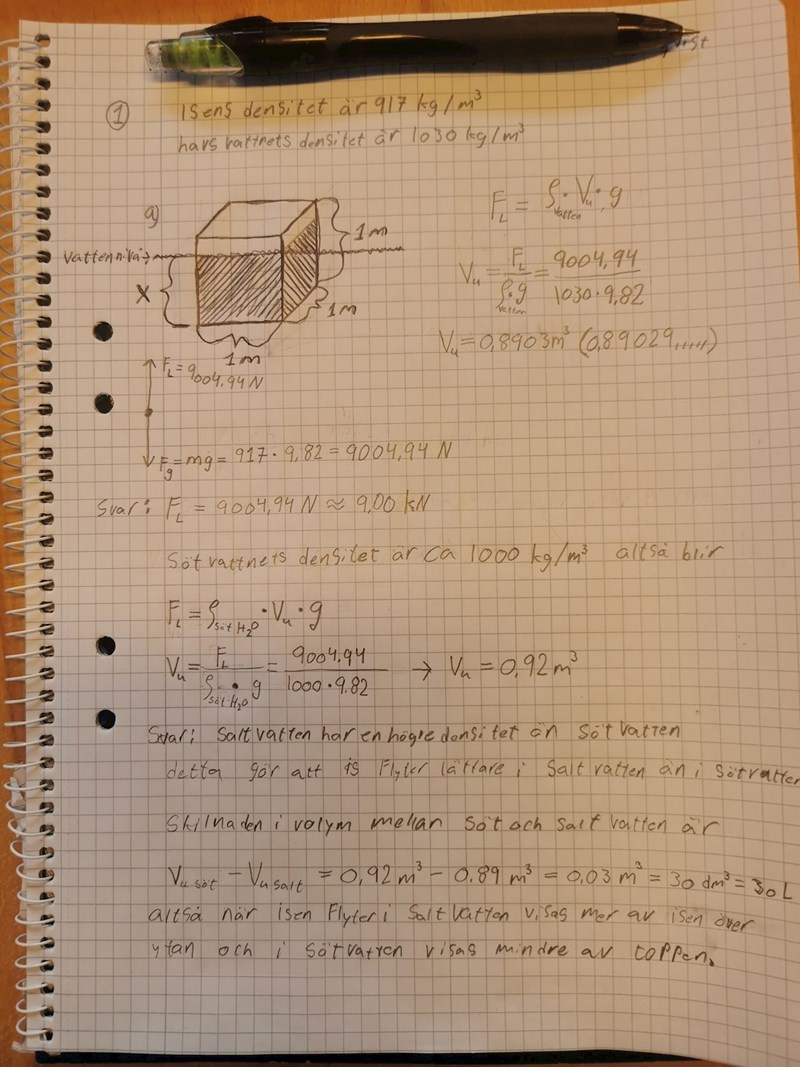 ① Isens densitet är 917 kg/m³
havsvattnets densitet är 1030 kg/m³
a)
Vattennivå
X
1m
1m
1m
F_L = 9004,94 N
F_g = mg = 917 · 9,82 = 9004,94 N
F_L = ρ_vatten · V_u · g
V_u = F_L / ρ_vatten · g = 9004,94 / 1030 · 9,82
V_u = 0,8903 m³ (0,89029,,,,,)
Svar: F_L = 9004,94 N ≈ 9,00 kN
Sötvattnets densitet är ca 1000 kg/m³ altså blir
F_L = ρ_söt H₂O · V_u · g
V_u = F_L / ρ_söt H₂O · g = 9004,94 / 1000 · 9,82 → V_u = 0,92 m³
Svar: Saltvatten har en högre densitet än Sötvatten
detta gör att is Flyter lättare i Saltvatten än i Sötvatten
Skilnaden i volym mellan Söt och Saltvatten är
V_u söt − V_u salt = 0,92 m³ − 0.89 m³ = 0,03 m³ = 30 dm³ = 30 L
altså när isen Flyter i Saltvatten visas mer av isen över
ytan och i Sötvatten visas mindre av toppen.